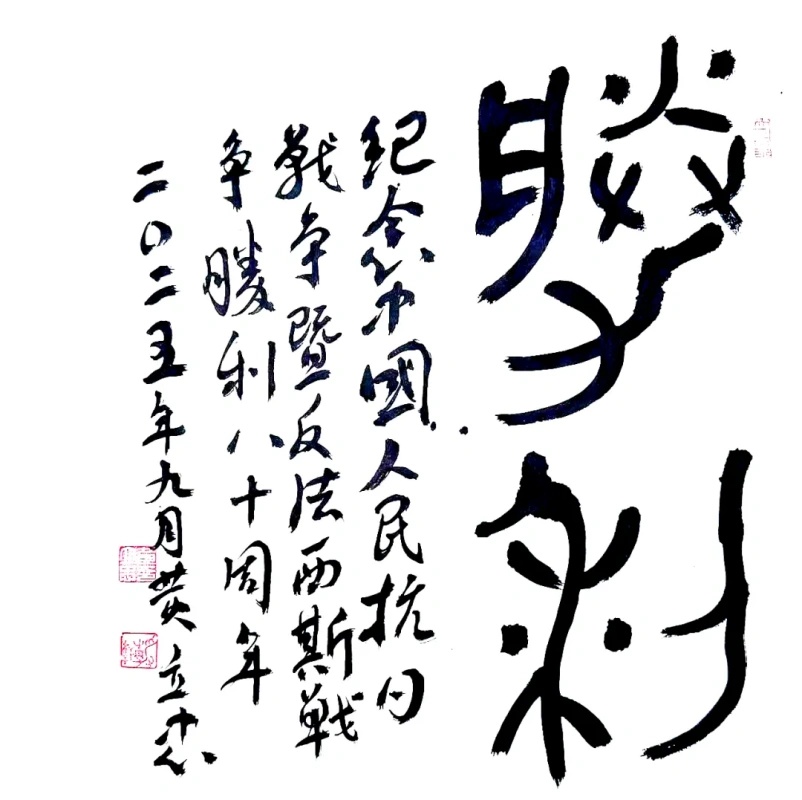 勝利
紀念中國人民抗日
戰争暨反法西斯戰
争勝利八十周年
二〇二五年九月黄立中